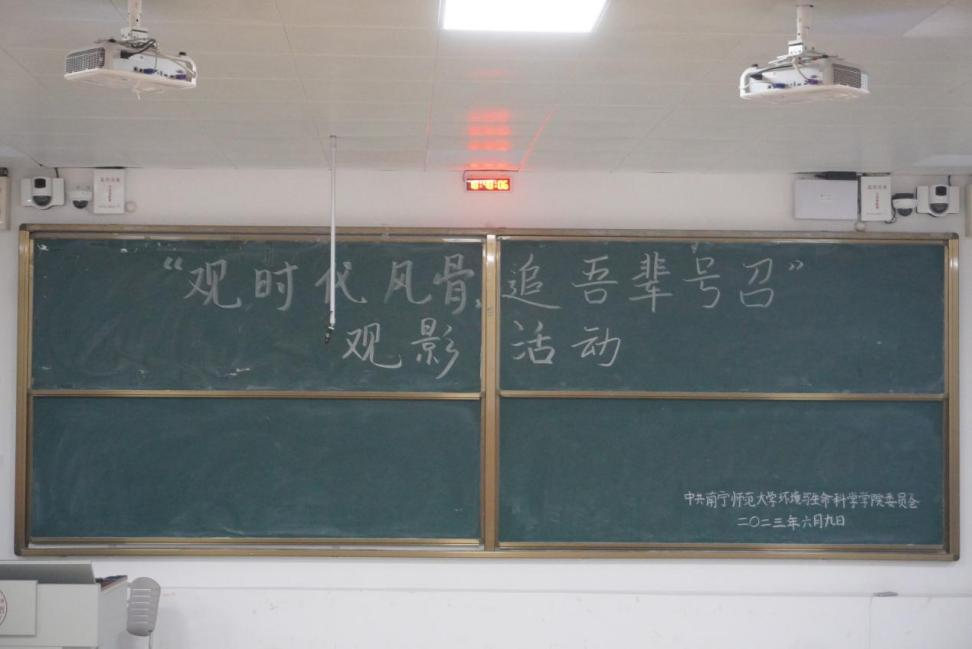 “观时代风骨,追吾辈号召”
观影活动
中共南宁师范大学环境与生命科学学院委员会
二〇二三年六月九日